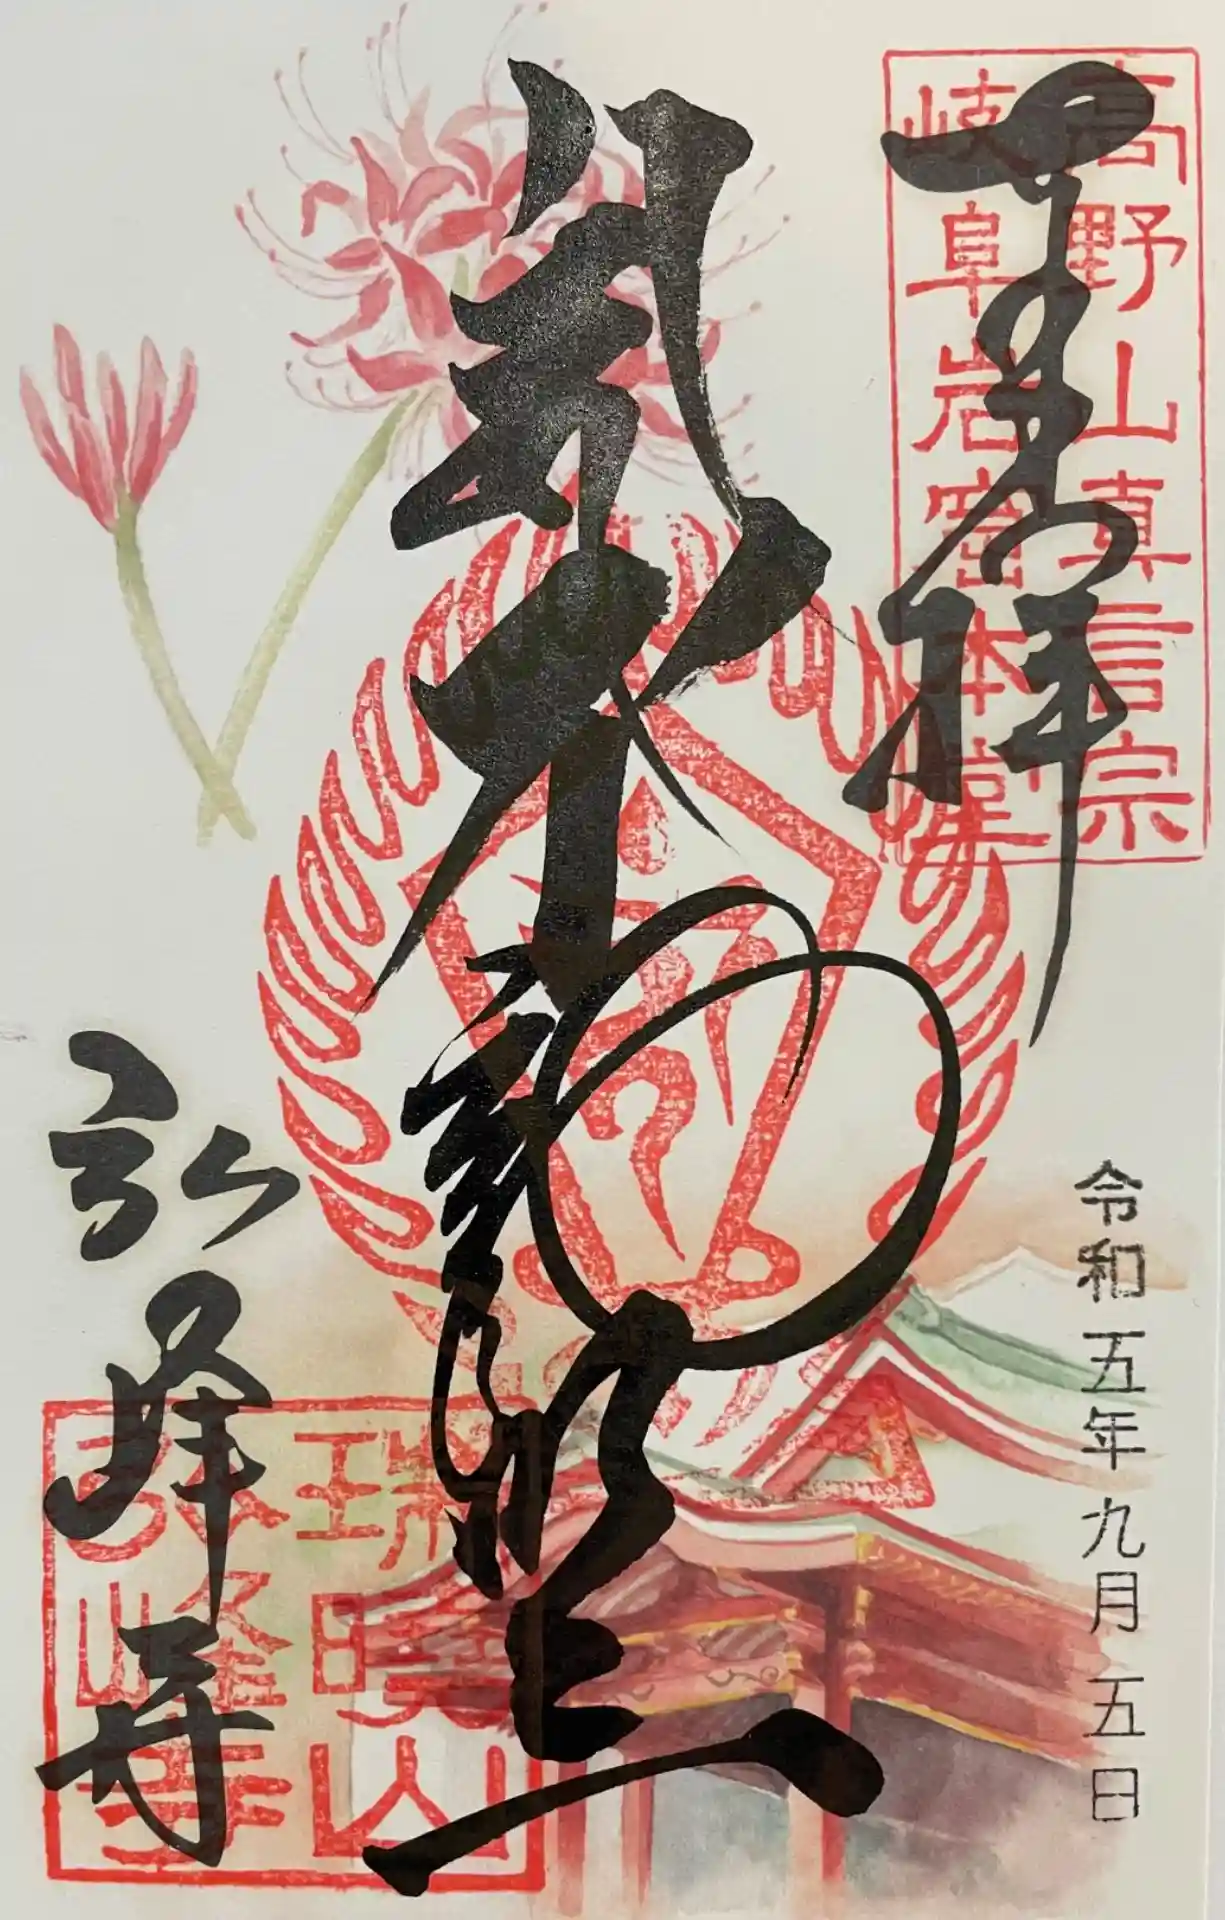 奉拝
高野山真言宗
岐阜岩窟本堂
令和五年九月五日
不動明王
弘峰寺
瑞暎山
弘峰寺